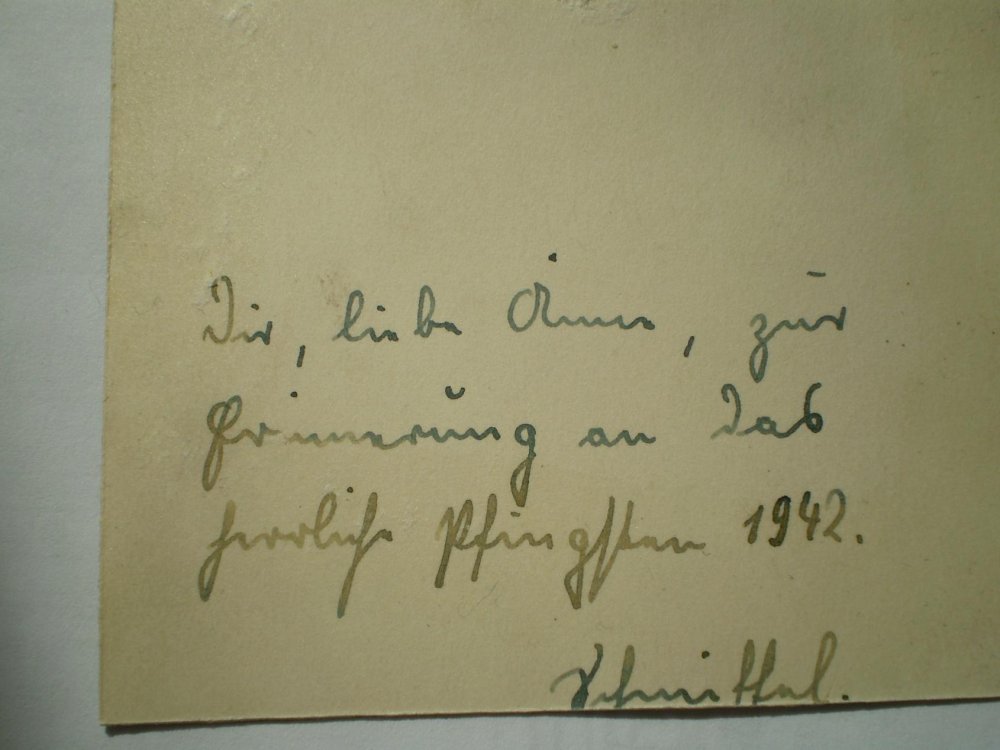 Dir, liebe Änne, zur
Erinnerung an das
herrliche Pfingsten 1942.
Schnittel.